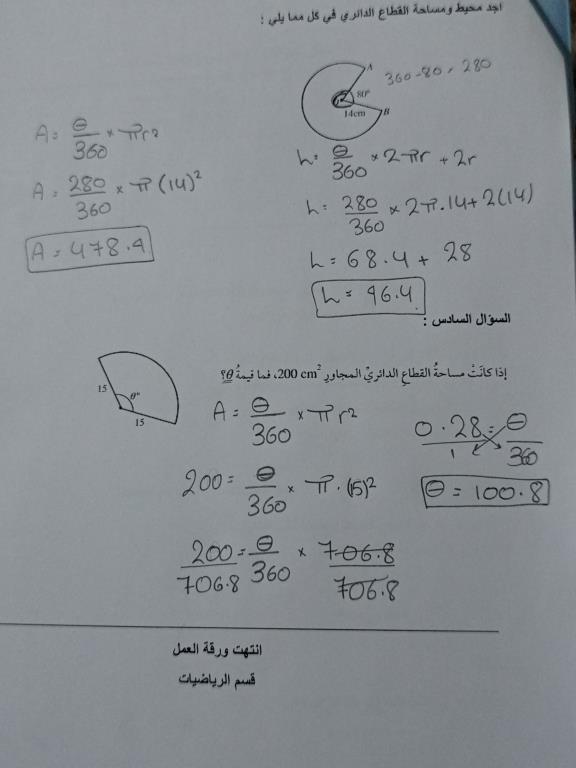 اجد محيط ومساحة القطاع الدائري في كل مما يلي :
A
80°
14cm
B
360-80 = 280
A = θ/360 × πr²
A = 280/360 × π(14)²
A = 478.4
L = θ/360 × 2πr + 2r
L = 280/360 × 2π.14 + 2(14)
L = 68.4 + 28
L = 96.4
السؤال السادس :
إذا كانَتْ مساحةُ القطاعِ الدائريِّ المجاورِ 200 cm²، فما قيمةُ θ؟
15
θ°
15
A = θ/360 × πr²
200 = θ/360 × π.(15)²
200/706.8 = θ/360 × 706.8/706.8
0.28/1 = θ/360
θ = 100.8
انتهت ورقة العمل
قسم الرياضيات